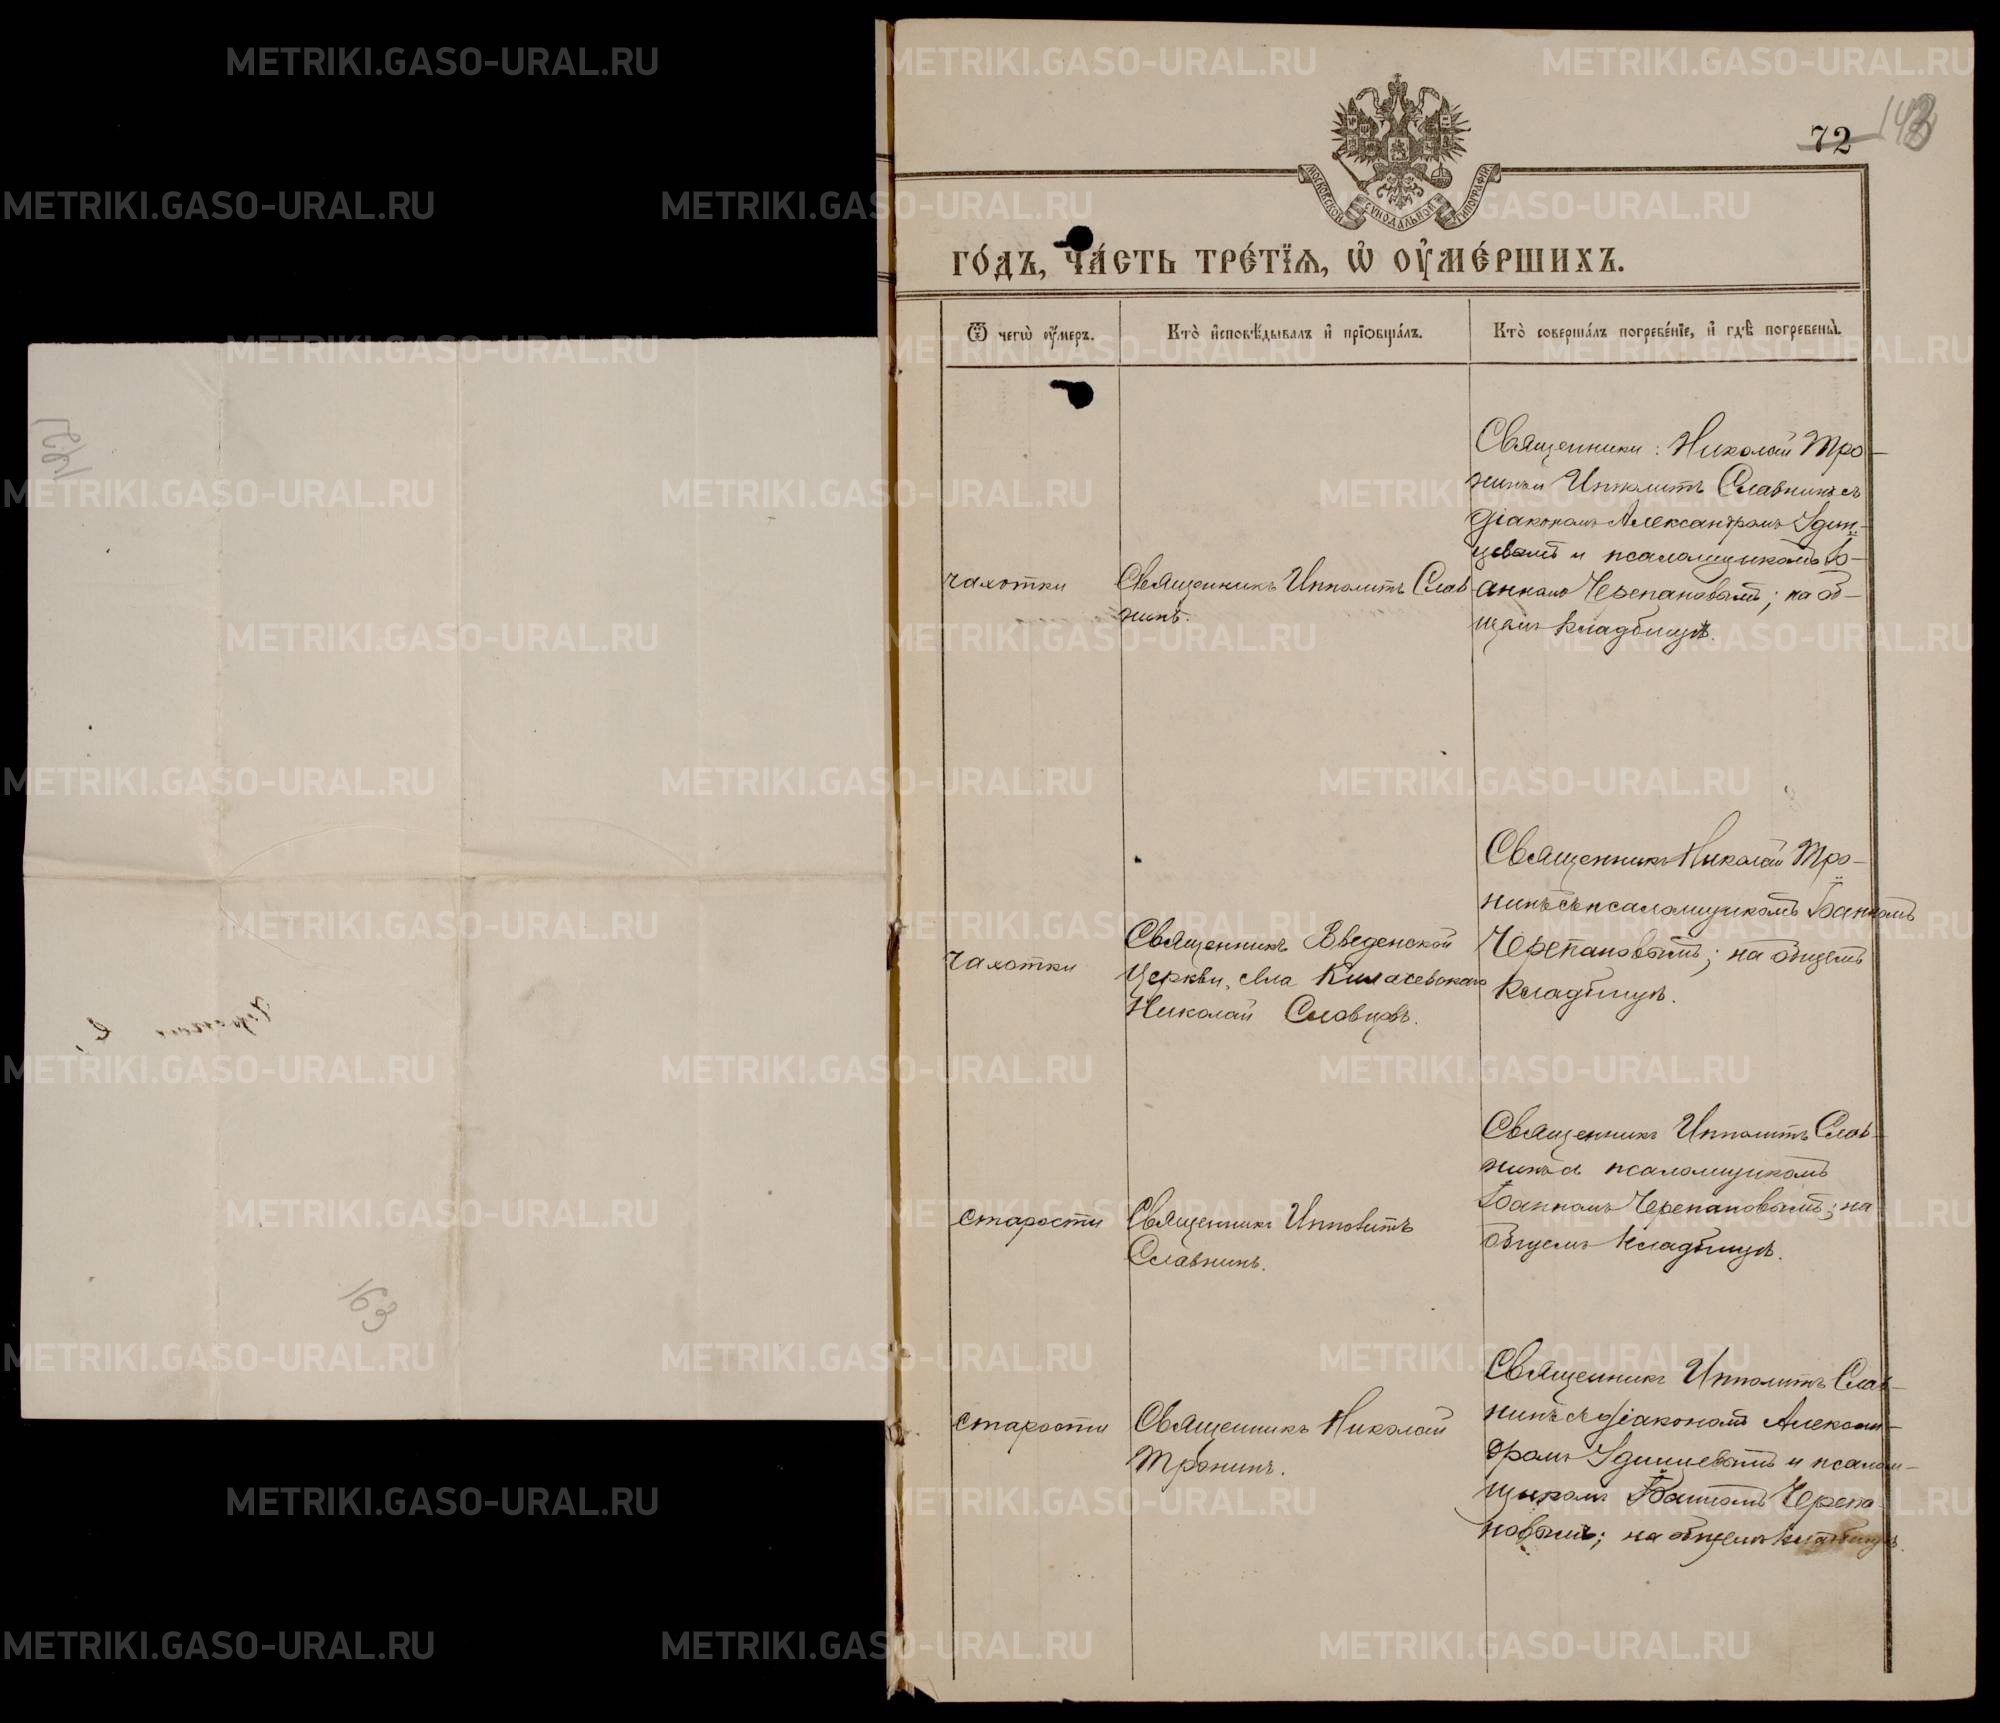 72
143
МОСКОВСКОЙ СѴНОДАЛЬНОЙ ТИПОГРАФІИ
ГО́ДЪ, ЧА́СТЬ ТРЕ́ТІѦ, Ѡ҆ ОУ҆МЕ́РШИХЪ.
Ѿ чегѡ̀ оу҆́меръ.
Кто̀ и҆сповѣ́дывалъ и҆ прїѻбща́лъ.
Кто̀ соверша́лъ погребе́нїе, и҆ гдѣ̀ погребены̀.
чахотки
Священникъ Ипполитъ Слав
нинъ.
Священники: Николай Тро-
нинъ и Ипполитъ Славнинъ съ
діакономъ Александромъ Удин-
цевымъ и псаломщикомъ Іо-
анномъ Черепановымъ; на об-
щемъ кладбищѣ.
чахотки
Священникъ Введенской
Церкви, села Килачевскаго
Николай Словцовъ.
Священникъ Николай Тро-
нинъ съ псаломщикомъ Іоанномъ
Черепановымъ; на общемъ
кладбищѣ.
старости
Священникъ Ипполитъ
Славнинъ.
Священникъ Ипполитъ Слав-
нинъ съ псаломщикомъ
Іоанномъ Черепановымъ; на
общемъ кладбищѣ.
старости
Священникъ Николай
Тронинъ.
Священникъ Ипполитъ Слав-
нинъ съ діакономъ Алексан-
дромъ Удинцевымъ и псалом-
щикомъ Іоанномъ Черепа-
новымъ; на общемъ кладбищѣ.
163
METRIKI.GASO-URAL.RU